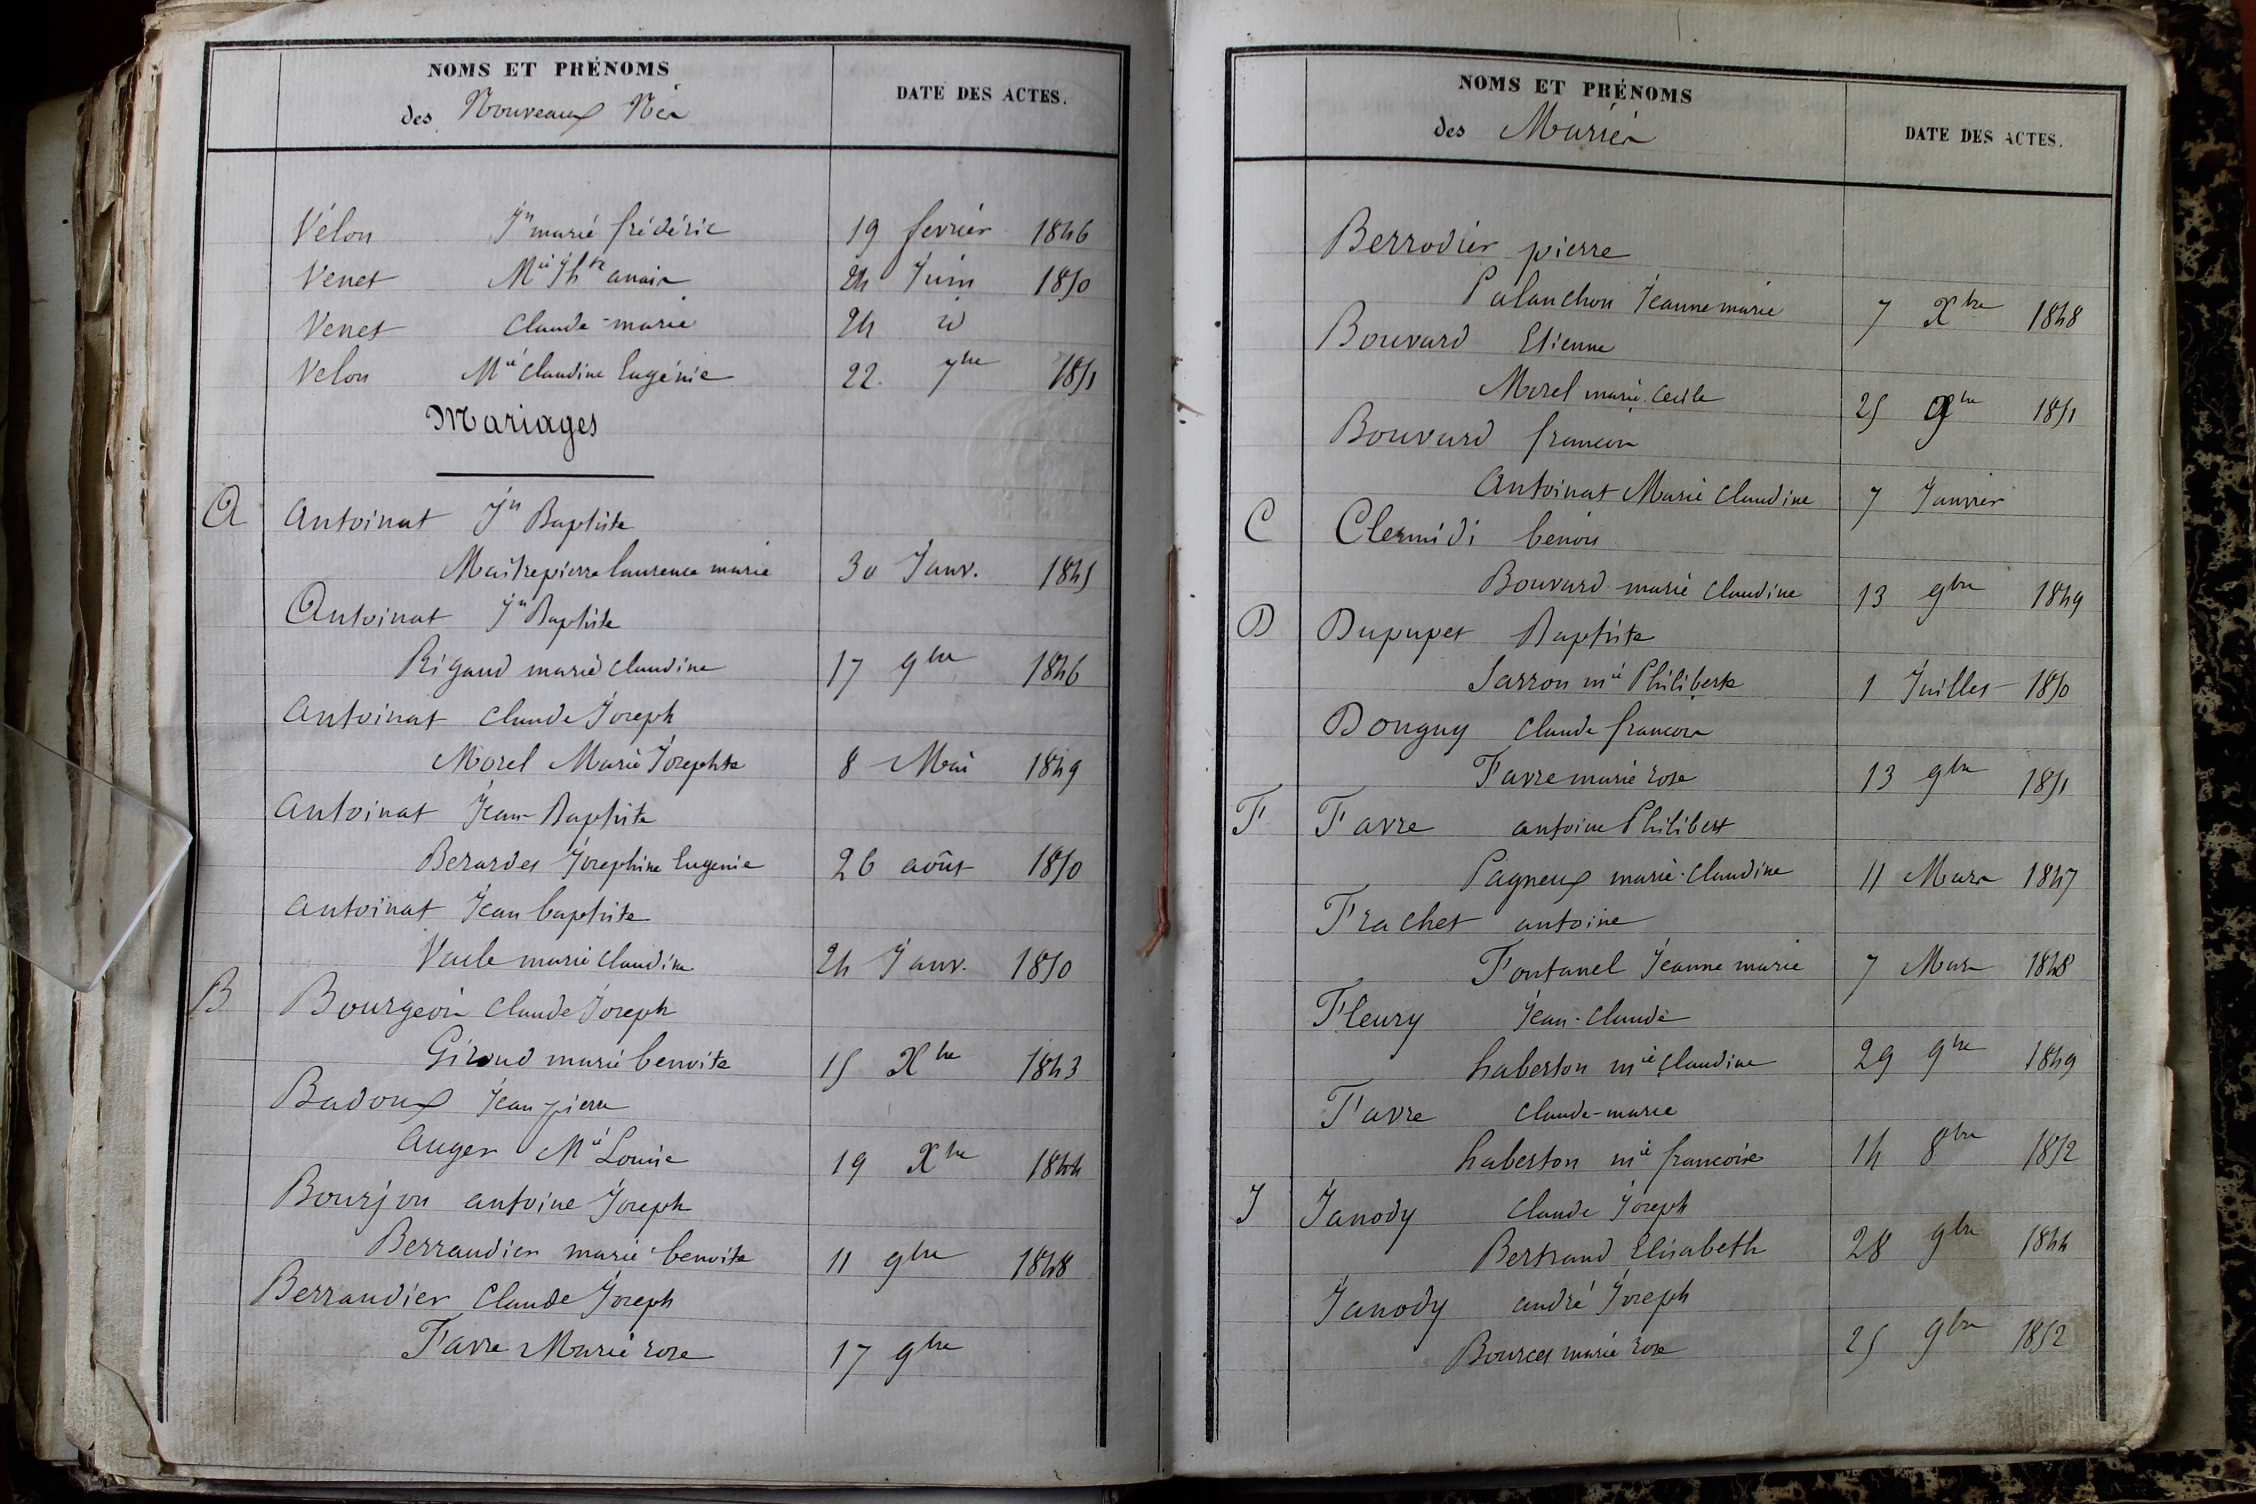 NOMS ET PRÉNOMS
des Nouveaux Nés
DATE DES ACTES.
Vélon Jn marie frédéric 19 fevrier 1846
Venet Mie Jhte anais 24 Juin 1850
Venet Claude-marie 24 id
Velon Mie Claudine Eugénie 22. 7bre 1851
Mariages
A Antoinat Jn Baptiste
Maitrepierre laurence marie 30 Janv. 1845
Antoinat Jn Baptiste
Rigaud marie Claudine 17 9bre 1846
Antoinat Claude Joseph
Morel Marie Josephte 8 Mai 1849
Antoinat Jean-Baptiste
Berardet Josephine Eugenie 26 août 1850
Antoinat Jean baptiste
Veule marie Claudine 24 Janv. 1850
B Bourgeois Claude Joseph
Giroud marie benoite 15 Xbre 1843
Badoux Jean pierre
Auger Mie Louise 19 Xbre 1844
Bourjon antoine Joseph
Berraudier marie benoite 11 9bre 1848
Berraudier Claude Joseph
Favre Marie rose 17 9bre
NOMS ET PRÉNOMS
des Mariés
DATE DES ACTES.
Berrodier pierre
Palanchon Jeanne marie 7 Xbre 1848
Bouvard Etienne
Morel marie Cecile 25 9bre 1851
Bouvard francois
Antoinat Marie Claudine 7 Janvier
C Clermidi benoit
Bouvard marie Claudine 13 9bre 1849
D Dupupet Baptiste
Sarron mie Philiberte 1 Juillet 1850
Dougny Claude francois
Favre marie rose 13 9bre 1851
F Favre antoine Philibert
Pagneux marie-Claudine 11 Mars 1847
Frachet antoine
Fontanel Jeanne marie 7 Mars 1848
Fleury Jean-Claude
haberton mie Claudine 29 9bre 1849
Favre Claude-marie
haberton mie francoise 14 8bre 1852
J Janody Claude Joseph
Bertrand Elisabeth 28 9bre 1844
Janody andré Joseph
Bourcet marie rose 25 9bre 1852